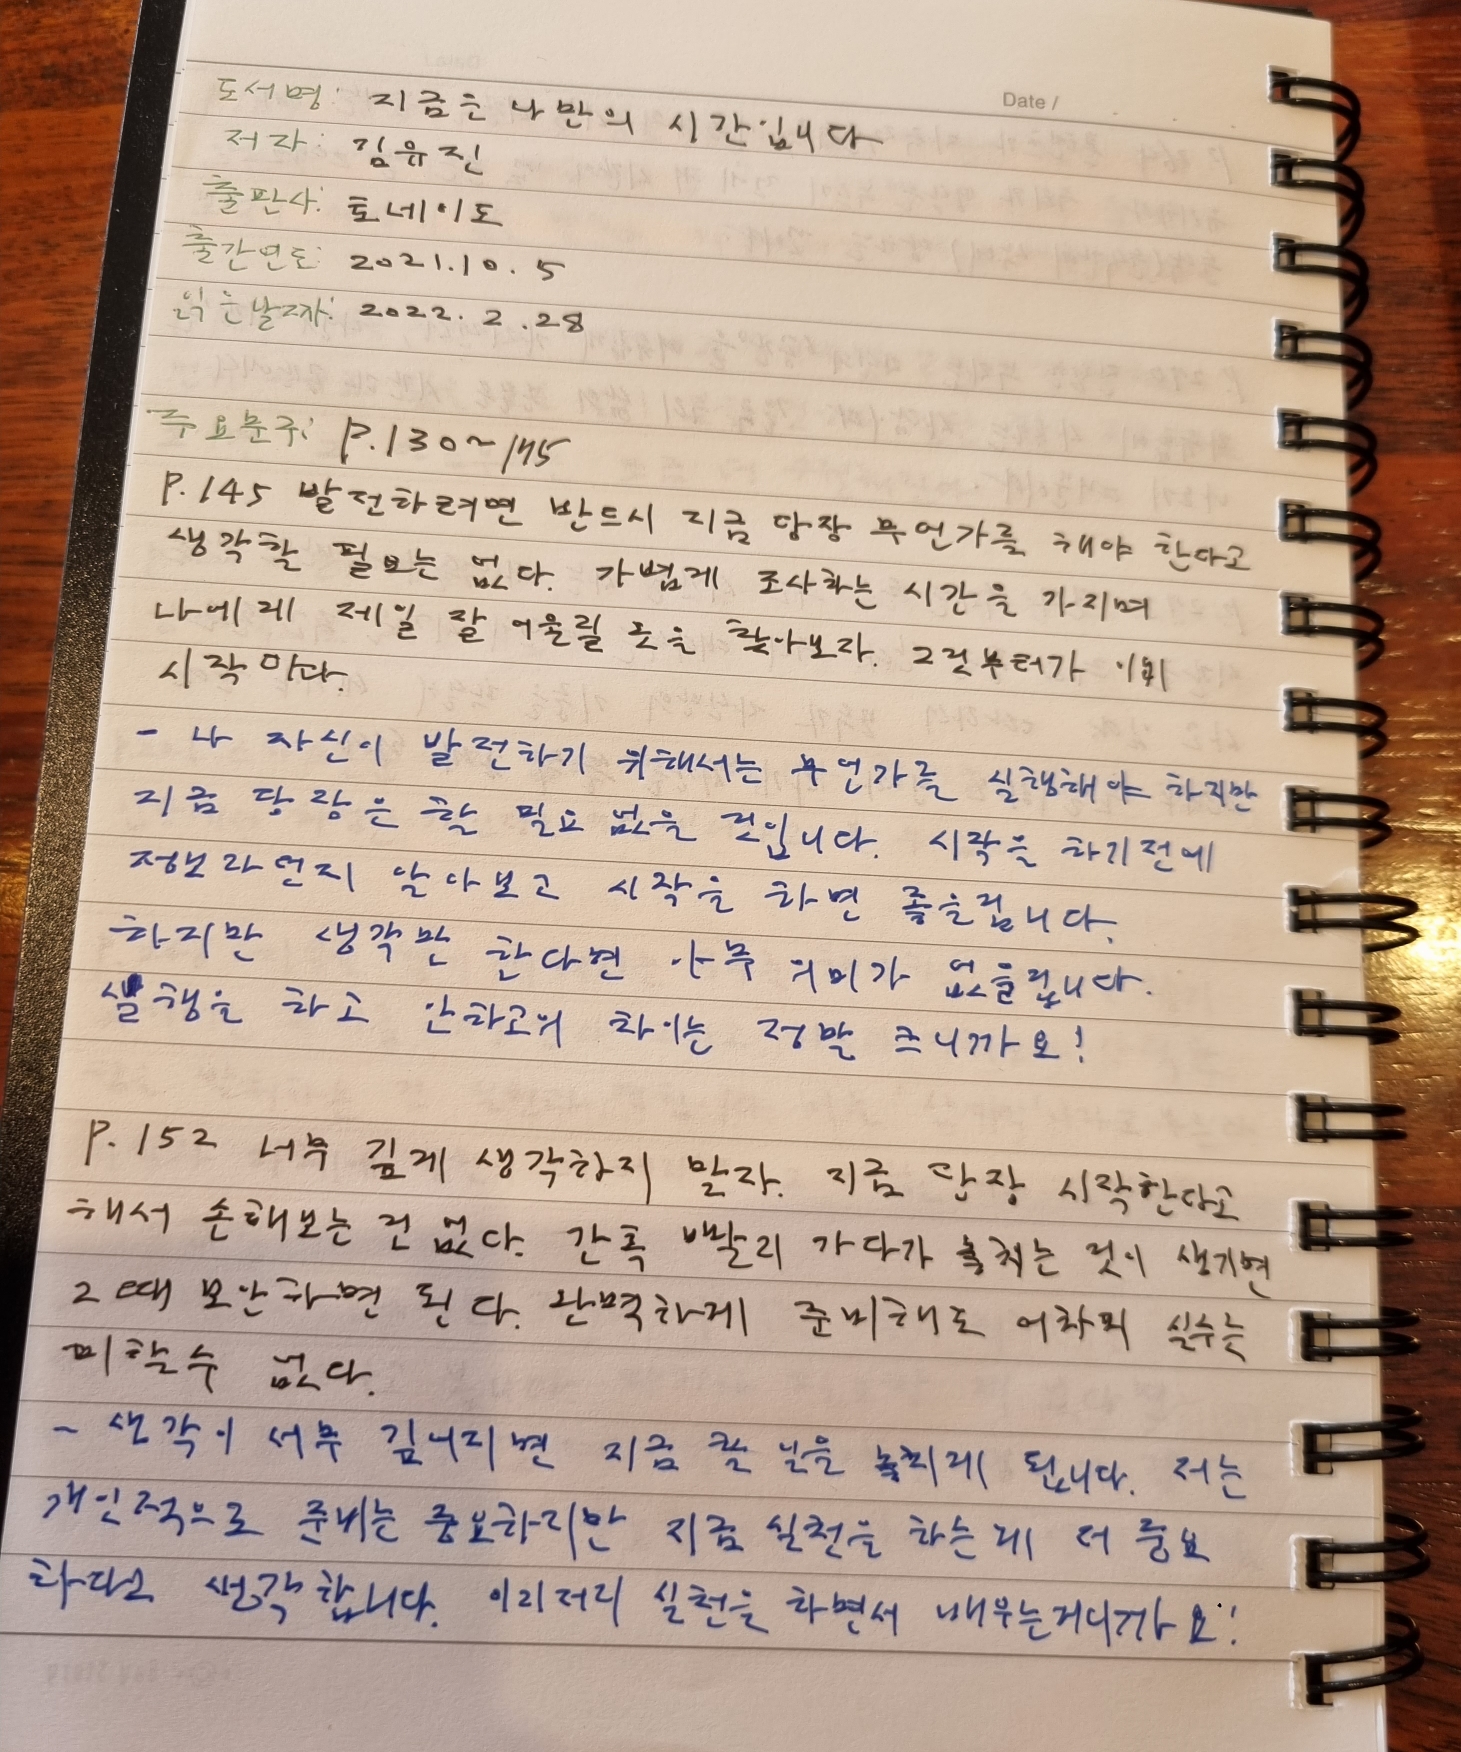 Date /
도서명: 지금은 나만의 시간입니다
저자: 김유진
출판사: 토네이도
출간연도: 2021.10.5
읽은날짜: 2022.2.28
주요문구: P.130~145
P.145 발전하려면 반드시 지금 당장 무언가를 해야 한다고
생각할 필요는 없다. 가볍게 조사하는 시간을 가지며
나에게 제일 잘 어울릴 듯을 찾아보자. 그것부터가 이미
시작이다.
- 나 자신이 발전하기 위해서는 무언가를 실행해야 하지만
지금 당장은 할 필요 없을 것입니다. 시작을 하기전에
정보라던지 알아보고 시작을 하면 좋을겁니다.
하지만 생각만 한다면 아무 의미가 없을겁니다.
실행을 하고 안하고의 차이는 정말 크니까요!
P.152 너무 깊게 생각하지 말자. 지금 당장 시작한다고
해서 손해보는 건 없다. 간혹 빨리 가다가 놓치는 것이 생기면
그때 보안하면 된다. 완벽하게 준비해도 어차피 실수는
피할수 없다.
- 생각이 너무 깊어지면 지금 할 일을 놓치게 됩니다. 저는
개인적으로 준비는 중요하지만 지금 실천을 하는게 더 중요
하다고 생각합니다. 이리저리 실천을 하면서 배우는거니까요!